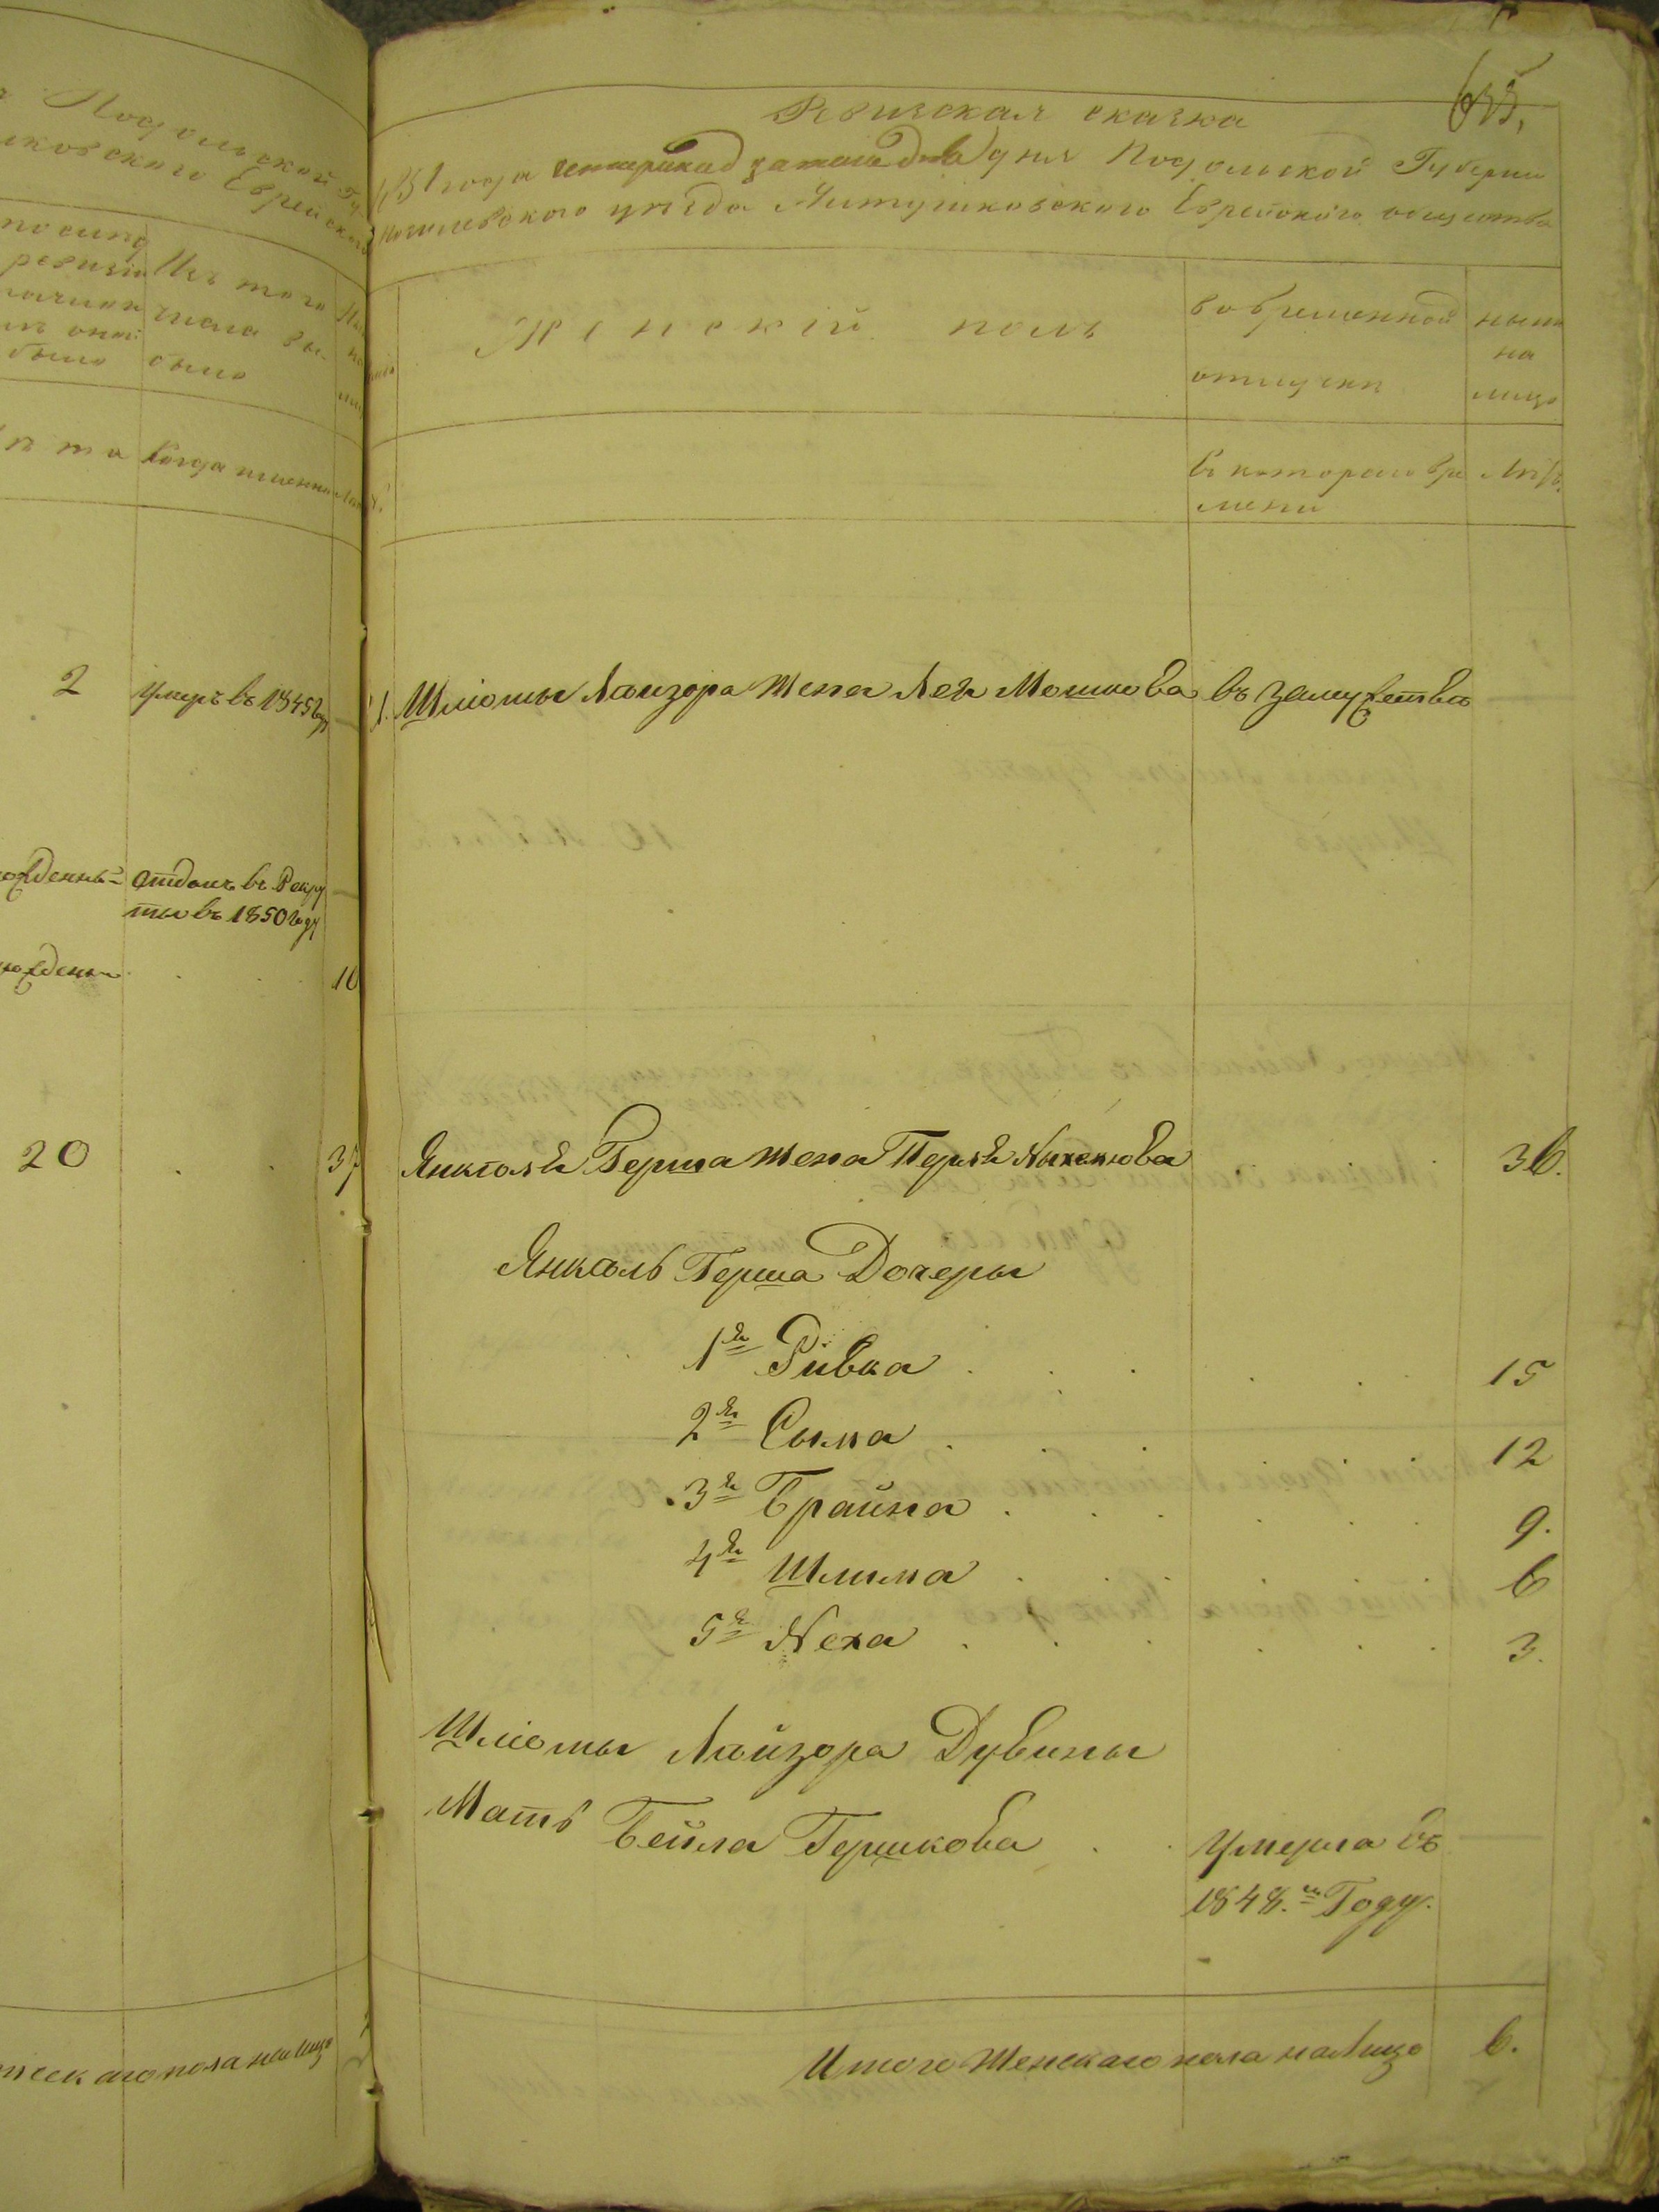 Подольской Гу
шковского Еврейского
ревизіи
было
Изъ того
числа вы-
было
Когда именно
2 умеръ въ 1845 году
отданъ въ Рекру
ты въ 1850 году
10
20 37
ческаго пола на лицо
635,
Ревизская сказка
1851 года дня Подольской Губерніи
могилевского уезда Литушковского Еврейского общества
Женскій полъ
во временной
отлучкѣ
нынѣ
на
лицо
Съ котораго вре
мени
Лѣта
Шліомы Лайзора жена Лея Мошкова въ замужествѣ
Янкель Герша жена Перля 36.
Янкель Герша Дочеры
1я Ривка 15
2я Сыма 12
3я Брайна 9.
4я Шлима 6
5я Неха 3.
Шліомы Лайзора Дувины
Мать Бейла Гершкова Умерла въ
1848.м Году.
Итого женскаго пола на лицо 6.